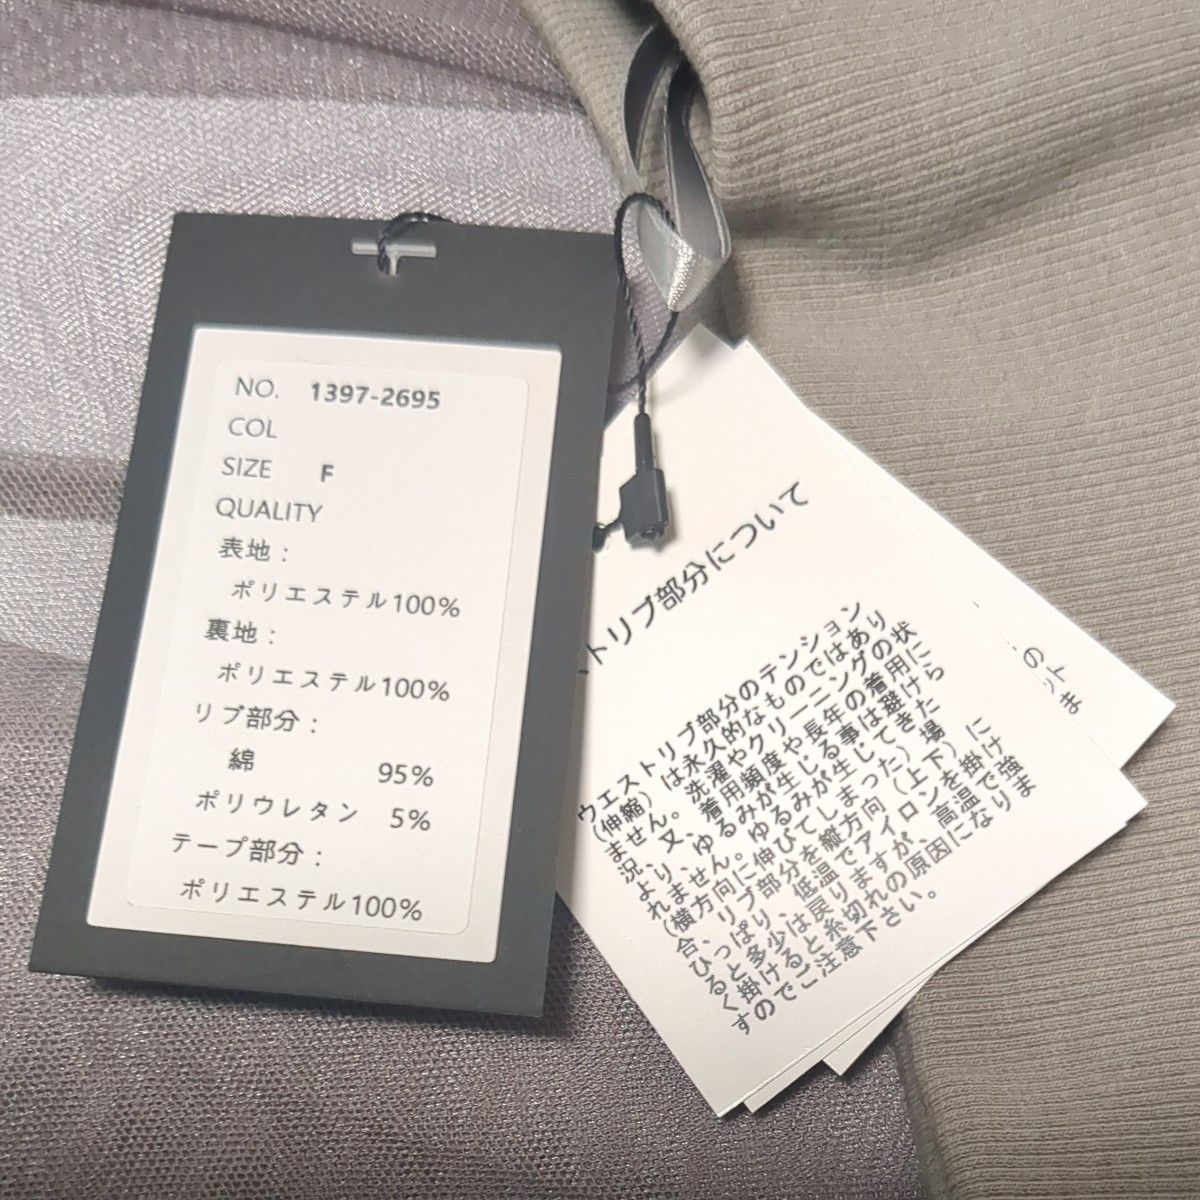 NO. 1397-2695
COL
SIZE F
QUALITY
表地:
ポリエステル100%
裏地:
ポリエステル100%
リブ部分:
綿 95%
ポリウレタン 5%
テープ部分:
ポリエステル100%
トリブ部分について
ウエストリブ部分のテンション
(伸縮)は永久的なものではあり
ません。洗濯やクリーニングの状
況、又、着用頻度や長年の着用に
より、ゆるみが生じる事は避けら
れません。ゆるみが生じてきた
(横方向に伸びてしまった)場
合、リブ部分を縦方向(上下)に
ひっぱり、低温でアイロンを掛け
ると多少は戻りますが、高温で強
く掛けると糸切れの原因になりま
すのでご注意下さい。
の
ット
ま